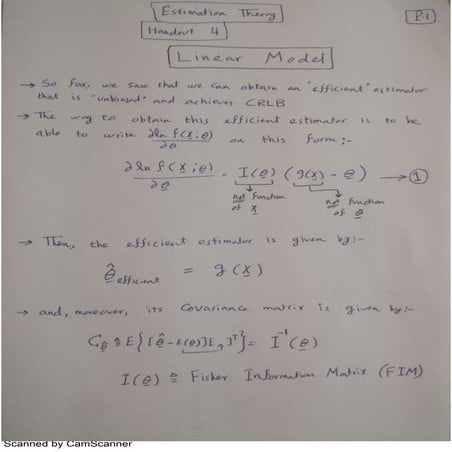 Estimation Theory
P.1
Handout 4
Linear Model
→ So far, we saw that we can obtain an "efficient" estimator
that is "unbiased" and achieves CRLB
→ The way to obtain this efficient estimator is to be
able to write ∂ln f(x;θ)/∂θ on this form:-
∂ln f(x;θ)/∂θ = I(θ) (g(x) - θ) → ①
not function of x
not function of θ
→ Then, the efficient estimator is given by:-
θ̂ efficient = g(x)
→ and, moreover, its Covariance matrix is given by:-
C_θ̂ ≜ E{[θ̂-E(θ)][ „ ]ᵀ} = I⁻¹(θ)
I(θ) ≜ Fisher Information Matrix (FIM)
Scanned by CamScanner